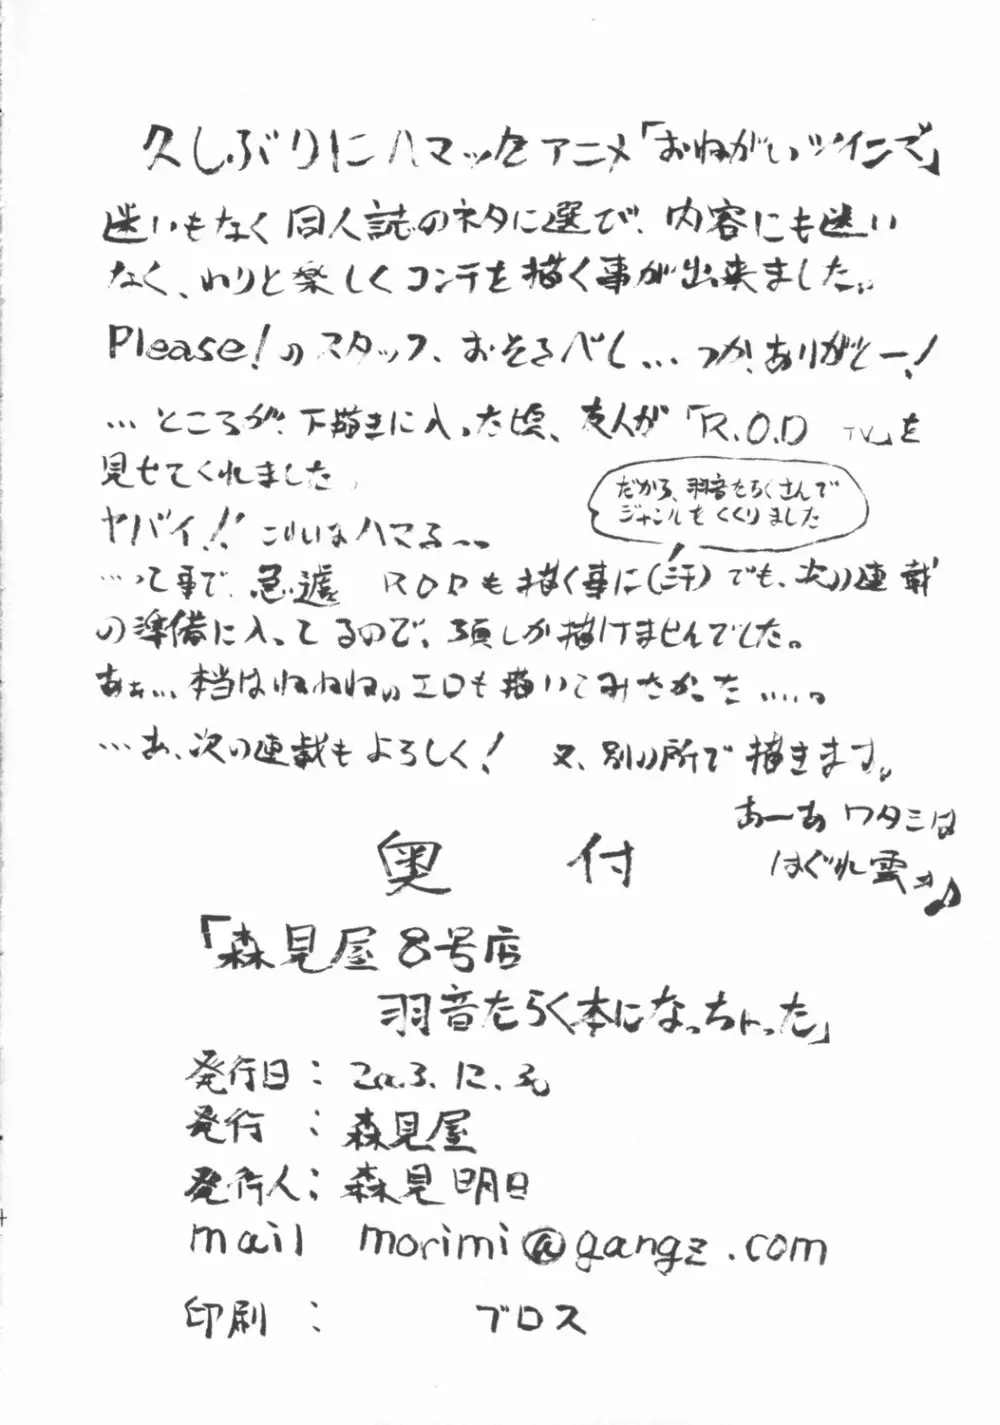 久しぶりにハマッたアニメ「おねがいツインズ」
迷いもなく同人誌のネタに選び、内容にも迷い
なく、わりと楽しくコンテを描く事が出来ました。
Please!のスタッフ、おそるべし…つか、ありがとー!
…ところが、下描きに入った頃、友人が「R.O.D TV」を
見せてくれました。
だから、羽音たらくさんで
ジャンルをくくりました
ヤバイ!!こりはハマる〜。
…って事で、急遽 RODも描く事に(汗)でも、次の連載
の準備に入ってるので、3頁しか描けませんでした。
あぁ…本当はねねねのエロも描いてみたかった……。
…あ、次の連載もよろしく! 又、別の所で描きます。
あーあ ワタシは
はぐれ雲さ♪
奥付
「森見屋8号店
羽音たらく本になっちゃった」
発行日:2003.12.30
発行 :森見屋
発行人:森見明日
mail morimi@gangz.com
印刷 : ブロス